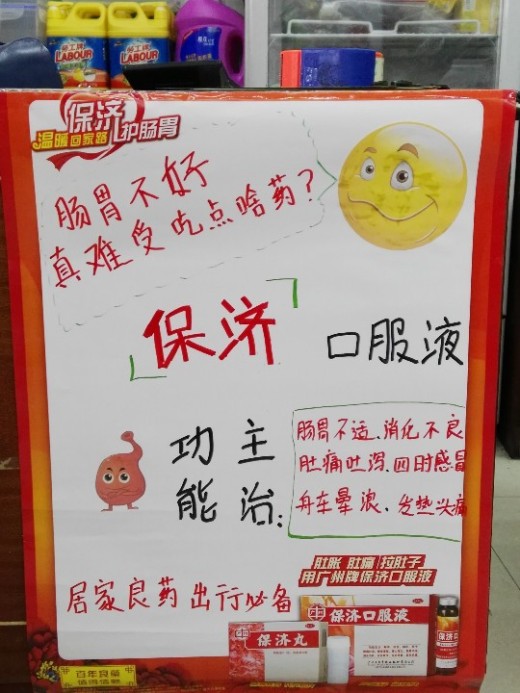 LABOUR
LABOUR
保济
温暖回家路 护肠胃
肠胃不好
真难受吃点啥药？
「保济」口服液
功能主治：
肠胃不适、消化不良
肚痛吐泻、四时感冒
舟车晕浪、发热头痛
肚胀 肚痛 拉肚子
用广州牌保济口服液
居家良药 出行必备
保济口服液
保济丸
百年良药